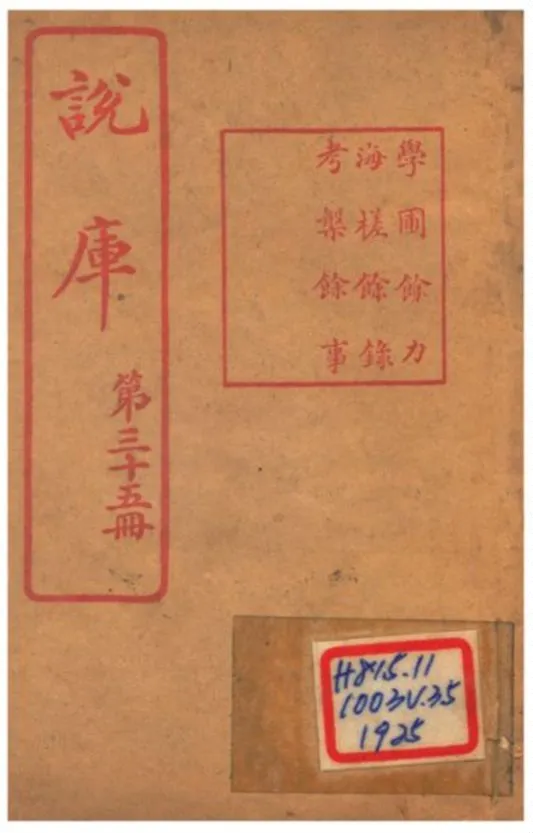 說庫
第三十五冊
學圃餘力
海槎餘錄
考槃餘事
H815.11
1003V.35
1925